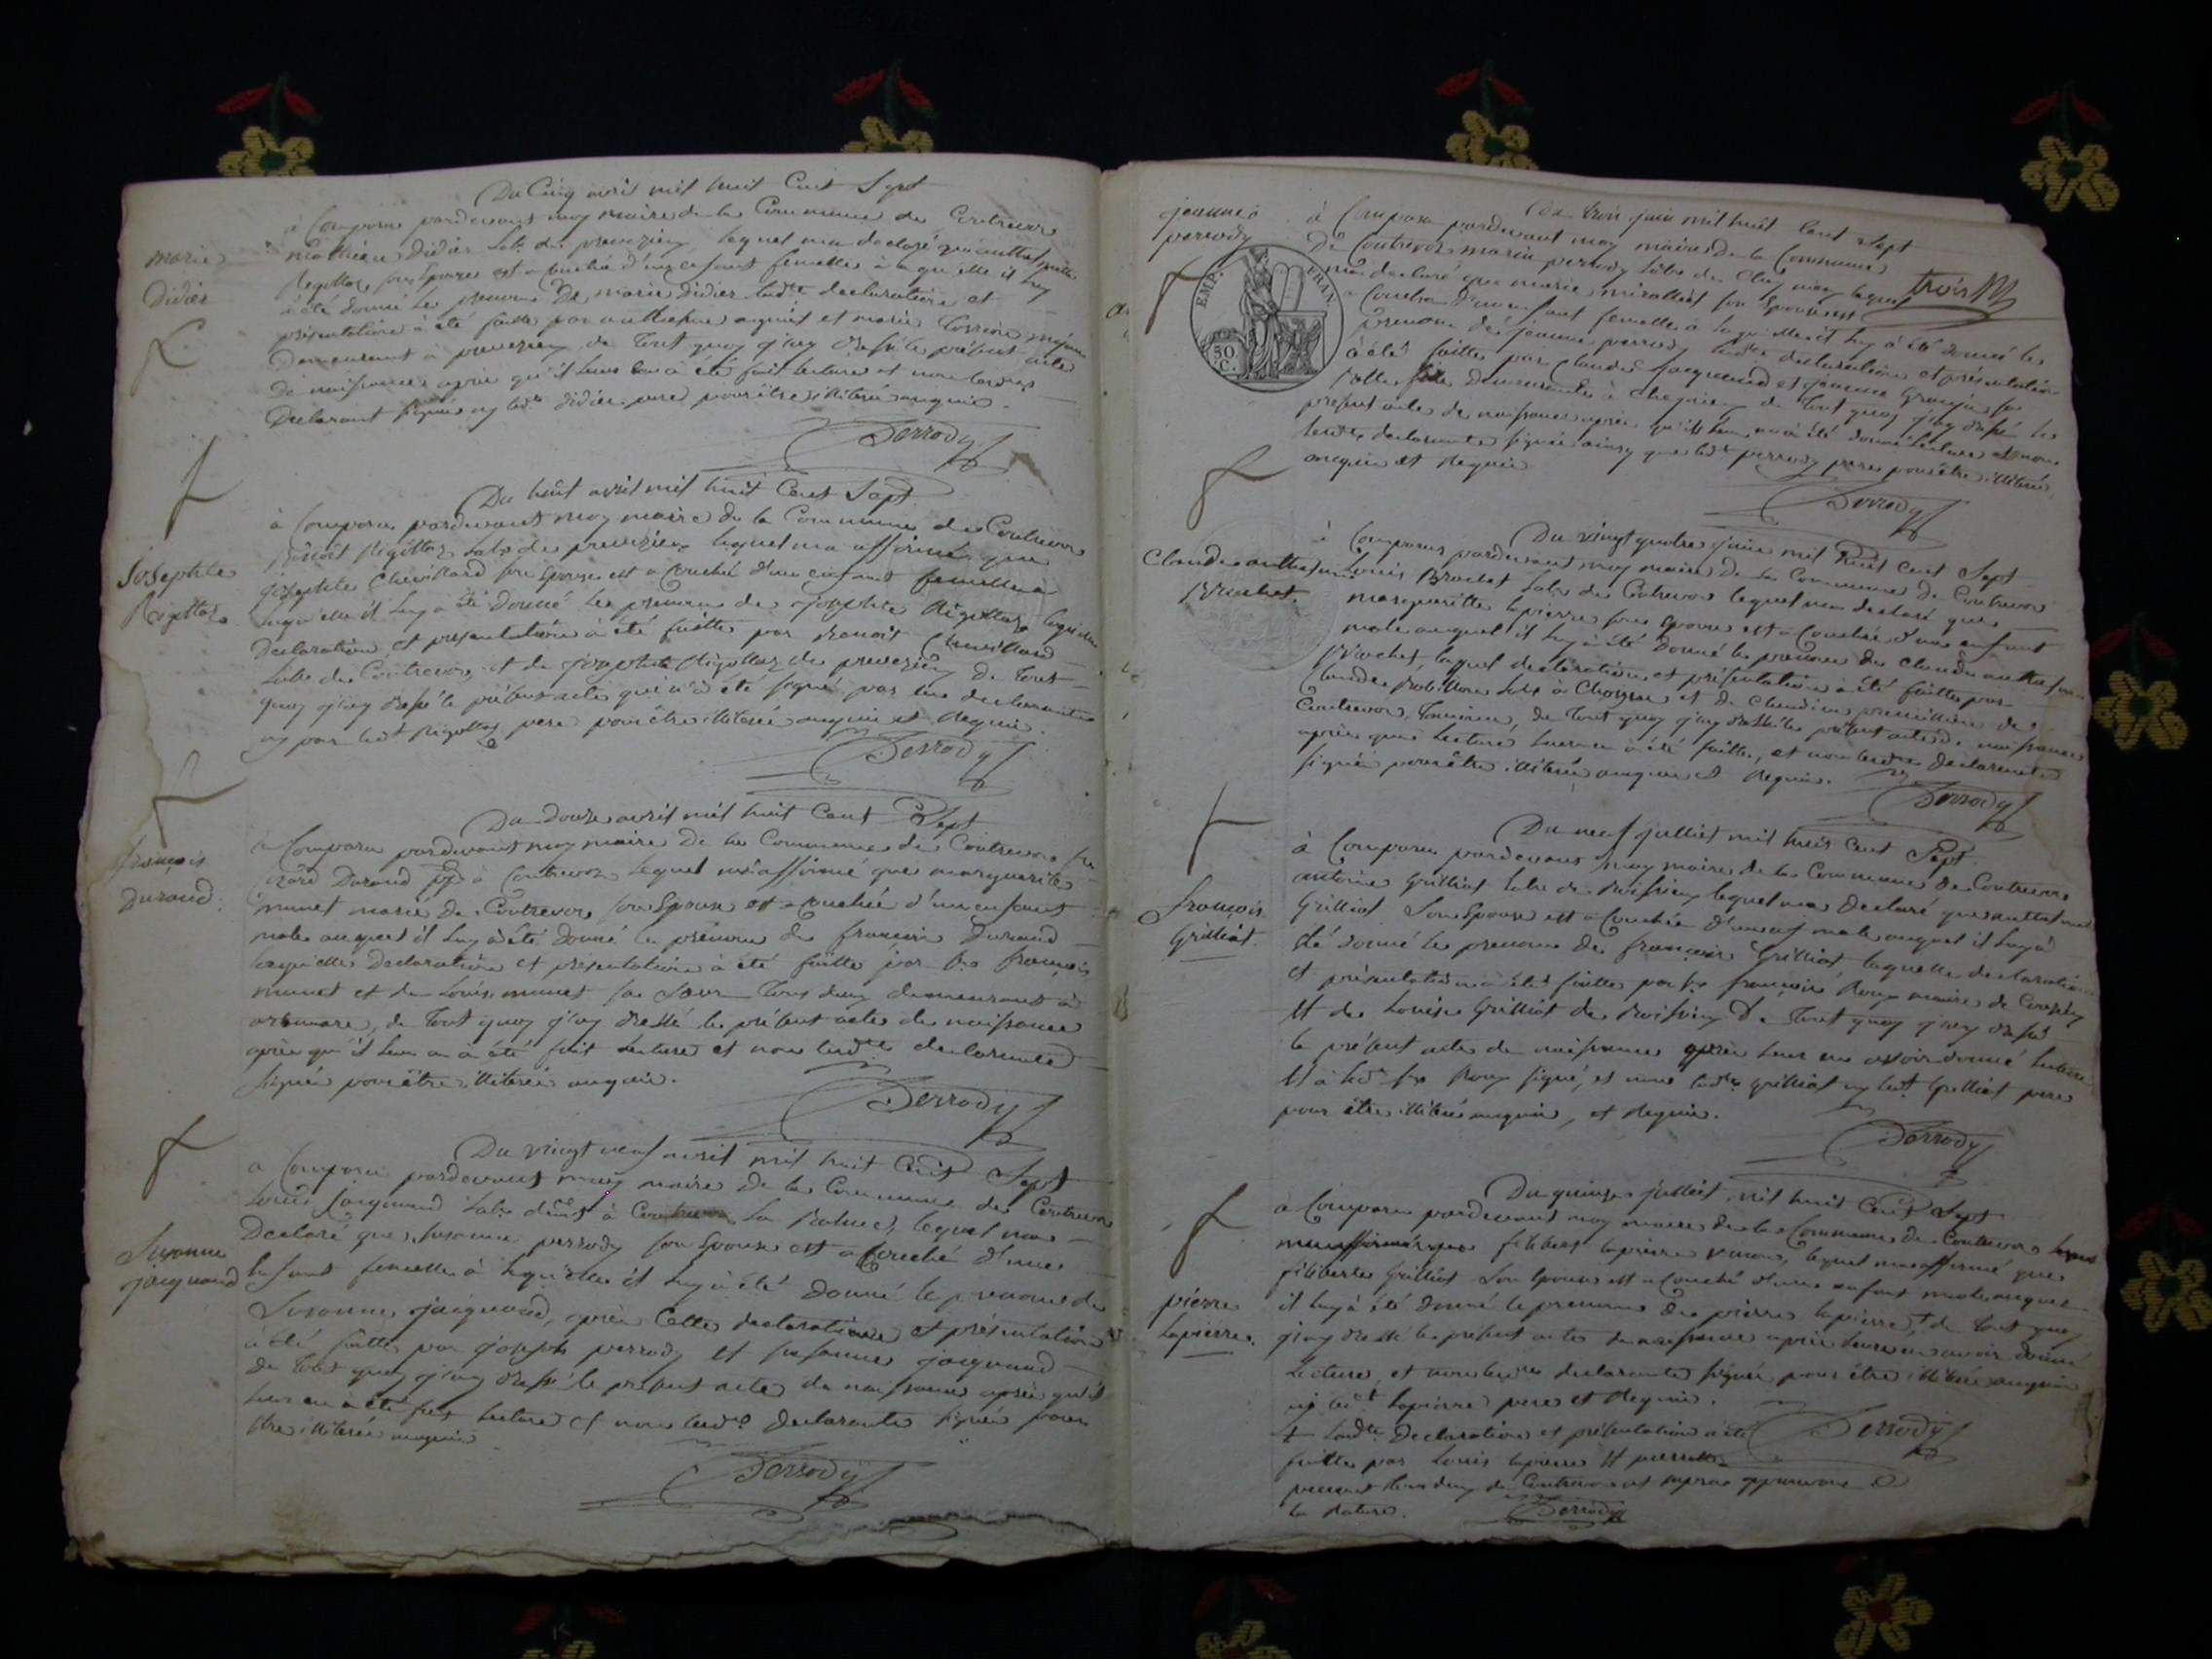 Du Cinq avril mil huit Cent Sept
à Comparu pardevant moy maire de la Commune de Contrevoz
marie
Didier
mathieu Didier Lab. de prevezieu lequel ma declaré qu'anthelmette
Rigottaz son Epouse est accouchée d'un enfant femelle à laquelle il luy
à été donné le prenom De marie Didier lad.te declaration et
présentation à été faitte par anthelme et marie
Demeurant à prevezieu de Tout quoy j'ay dressé le présent acte
De naissance après qu'il leurs en à été fait lecture et non lesd.
Declarant signés ny led.t didier pere pour être illiteré enquis
Perrody
Du huit avril mil huit Cent Sept
à Comparu pardevant moy maire de la Commune de Contrevoz
Josephte
Rigottaz
Benoit Rigottaz Lab. de prevezieu lequel ma affirmé que
josephte Chevillard son Epouse est accouché d'un enfant femelle a
laquelle il luy à été Donné le prenom de josephte Rigottaz laquelle
Declaration et présentation à été faitte par Benoit Chevillard
Lab. de Contrevoz et de josephte Rigottaz de prevezieu De Tout
quoy j'ay dressé le présent acte qui n'à été signé par les declarants
ny par led.t Rigottaz pere pour être illiteré enquis et Requis
Perrody
Du Douze avril mil huit Cent Sept
à Comparu pardevant moy maire De la Commune de Contrevoz
françois
Durand
Durand à Contrevoz lequel m'a affirmé que marguerite
munet marié de Contrevoz son Epouse est accouchée d'un enfant
male auquel il luy à été donné le prénom de françois Durand
laquelle Declaration et présentation à été faitte par françois
munet et de Louise munet sa Soeur Tous deux demeurant à
arbinare, de Tout quoy j'ay dressé le présent acte de naissance
après qu'il leur en à été fait lecture et non lesd.ts declarants
signés pour être illiterés enquis.
Perrody
Du vingt neuf avril mil huit Cent Sept
à Comparu pardevant moy maire De la Commune de Contrevoz
Suzanne
jacquand
Louis jacquand Lab. à La Balme, lequel ma
Declaré que Suzanne perrody son Epouse est accouché d'une
Enfant femelle à laquelle il luy à été Donné le prenom de
Suzanne jacquand, après Cette declaration et présentation
à été faitte par joseph perrody et susanne jacquand
de Tout quoy j'ay dressé le présent acte de naissance après qu'il
leur en à été fait lecture et non lesd.ts declarants signés pour
être illiterés enquis
Perrody
jeanne
perrody
EMP. FRAN.
50 C.
Du trois juin mil huit Cent Sept
à Comparu pardevant moy maire De la Commune
De Contrevoz marin perrody lab. de lequel
trois
ma declaré que marie son Epouse est
accouchée d'un enfant femelle à laquelle il luy à été donné le
prenom de jeanne perrody lad.te declaration et présentation
à été faitte par Claude jacquand et jeanne sa
demeurants à Cheignieu de Tout quoy j'ay dressé le
présent acte de naissance après qu'il leur en à été donné lecture et non
lesd.ts declarants signés ainsy que led.t perrody pere pour être illiteré
enquis et Requis
Perrody
Du vingt quatre juin mil huit Cent Sept
à Comparus pardevant moy maire de la Commune de Contrevoz
Claude anthelme
Brachet.
Louis Brachet Lab. de Contrevoz lequel ma declaré que
marguerite lapierre son Epouse est accouchée d'un enfant
male auquel il luy à été Donné le prenom de Claude anthelme
Brachet, laquel declaration et présentation à été faitte par
Claude Lab. à et de Claudine de
Contrevoz, de Tout quoy j'ay dressé le présent acte de naissance
après que lecture leur en à été faitte, et non lesd.ts declarants
signés pour être illiterés enquis et Requis.
Perrody
Du neuf julliet mil huit Cent Sept
à Comparu pardevant moy maire de la Commune de Contrevoz
françois
Grilliat.
antoine Grilliat lab. de Boissieu lequel ma declaré que
Grilliat Son Epouse est accouchée d'un enf male auquel il luy à
été donné le prenom de françois Grilliat laquelle declaration
et présentation à été faitte par françois Roux maire de
et de Louise Grilliat de Boissieu De Tout quoy j'ay dressé
le présent acte de naissance après leur en avoir donné lecture
et à led.t Roux signé, et non lad.te Grilliat ny led.t Grilliat pere
pour être illiteré enquis, et Requis.
Perrody
Du quinze julliet mil huit Cent Sept
à Comparu pardevant moy maire de la Commune de Contrevoz
pierre
lapierre.
filibert lapierre lequel ma affirmé que
filiberte Grilliat Son Epouse est accouché d'une enfant male auquel
il luy à été donné le prenom de pierre lapierre, de Tout quoy
j'ay dressé le présent acte de naissance après leur en avoir donné
Lecture, et non lesd.ts declarants signés pour être illiterés enquis
ny led.t lapierre pere et Requis.
Lad.te Declaration et présentation à été
faitte par Louis lapierre et pierrette
Tous deux de Contrevoz approuvons
la Rature.
Perrody
Perrody